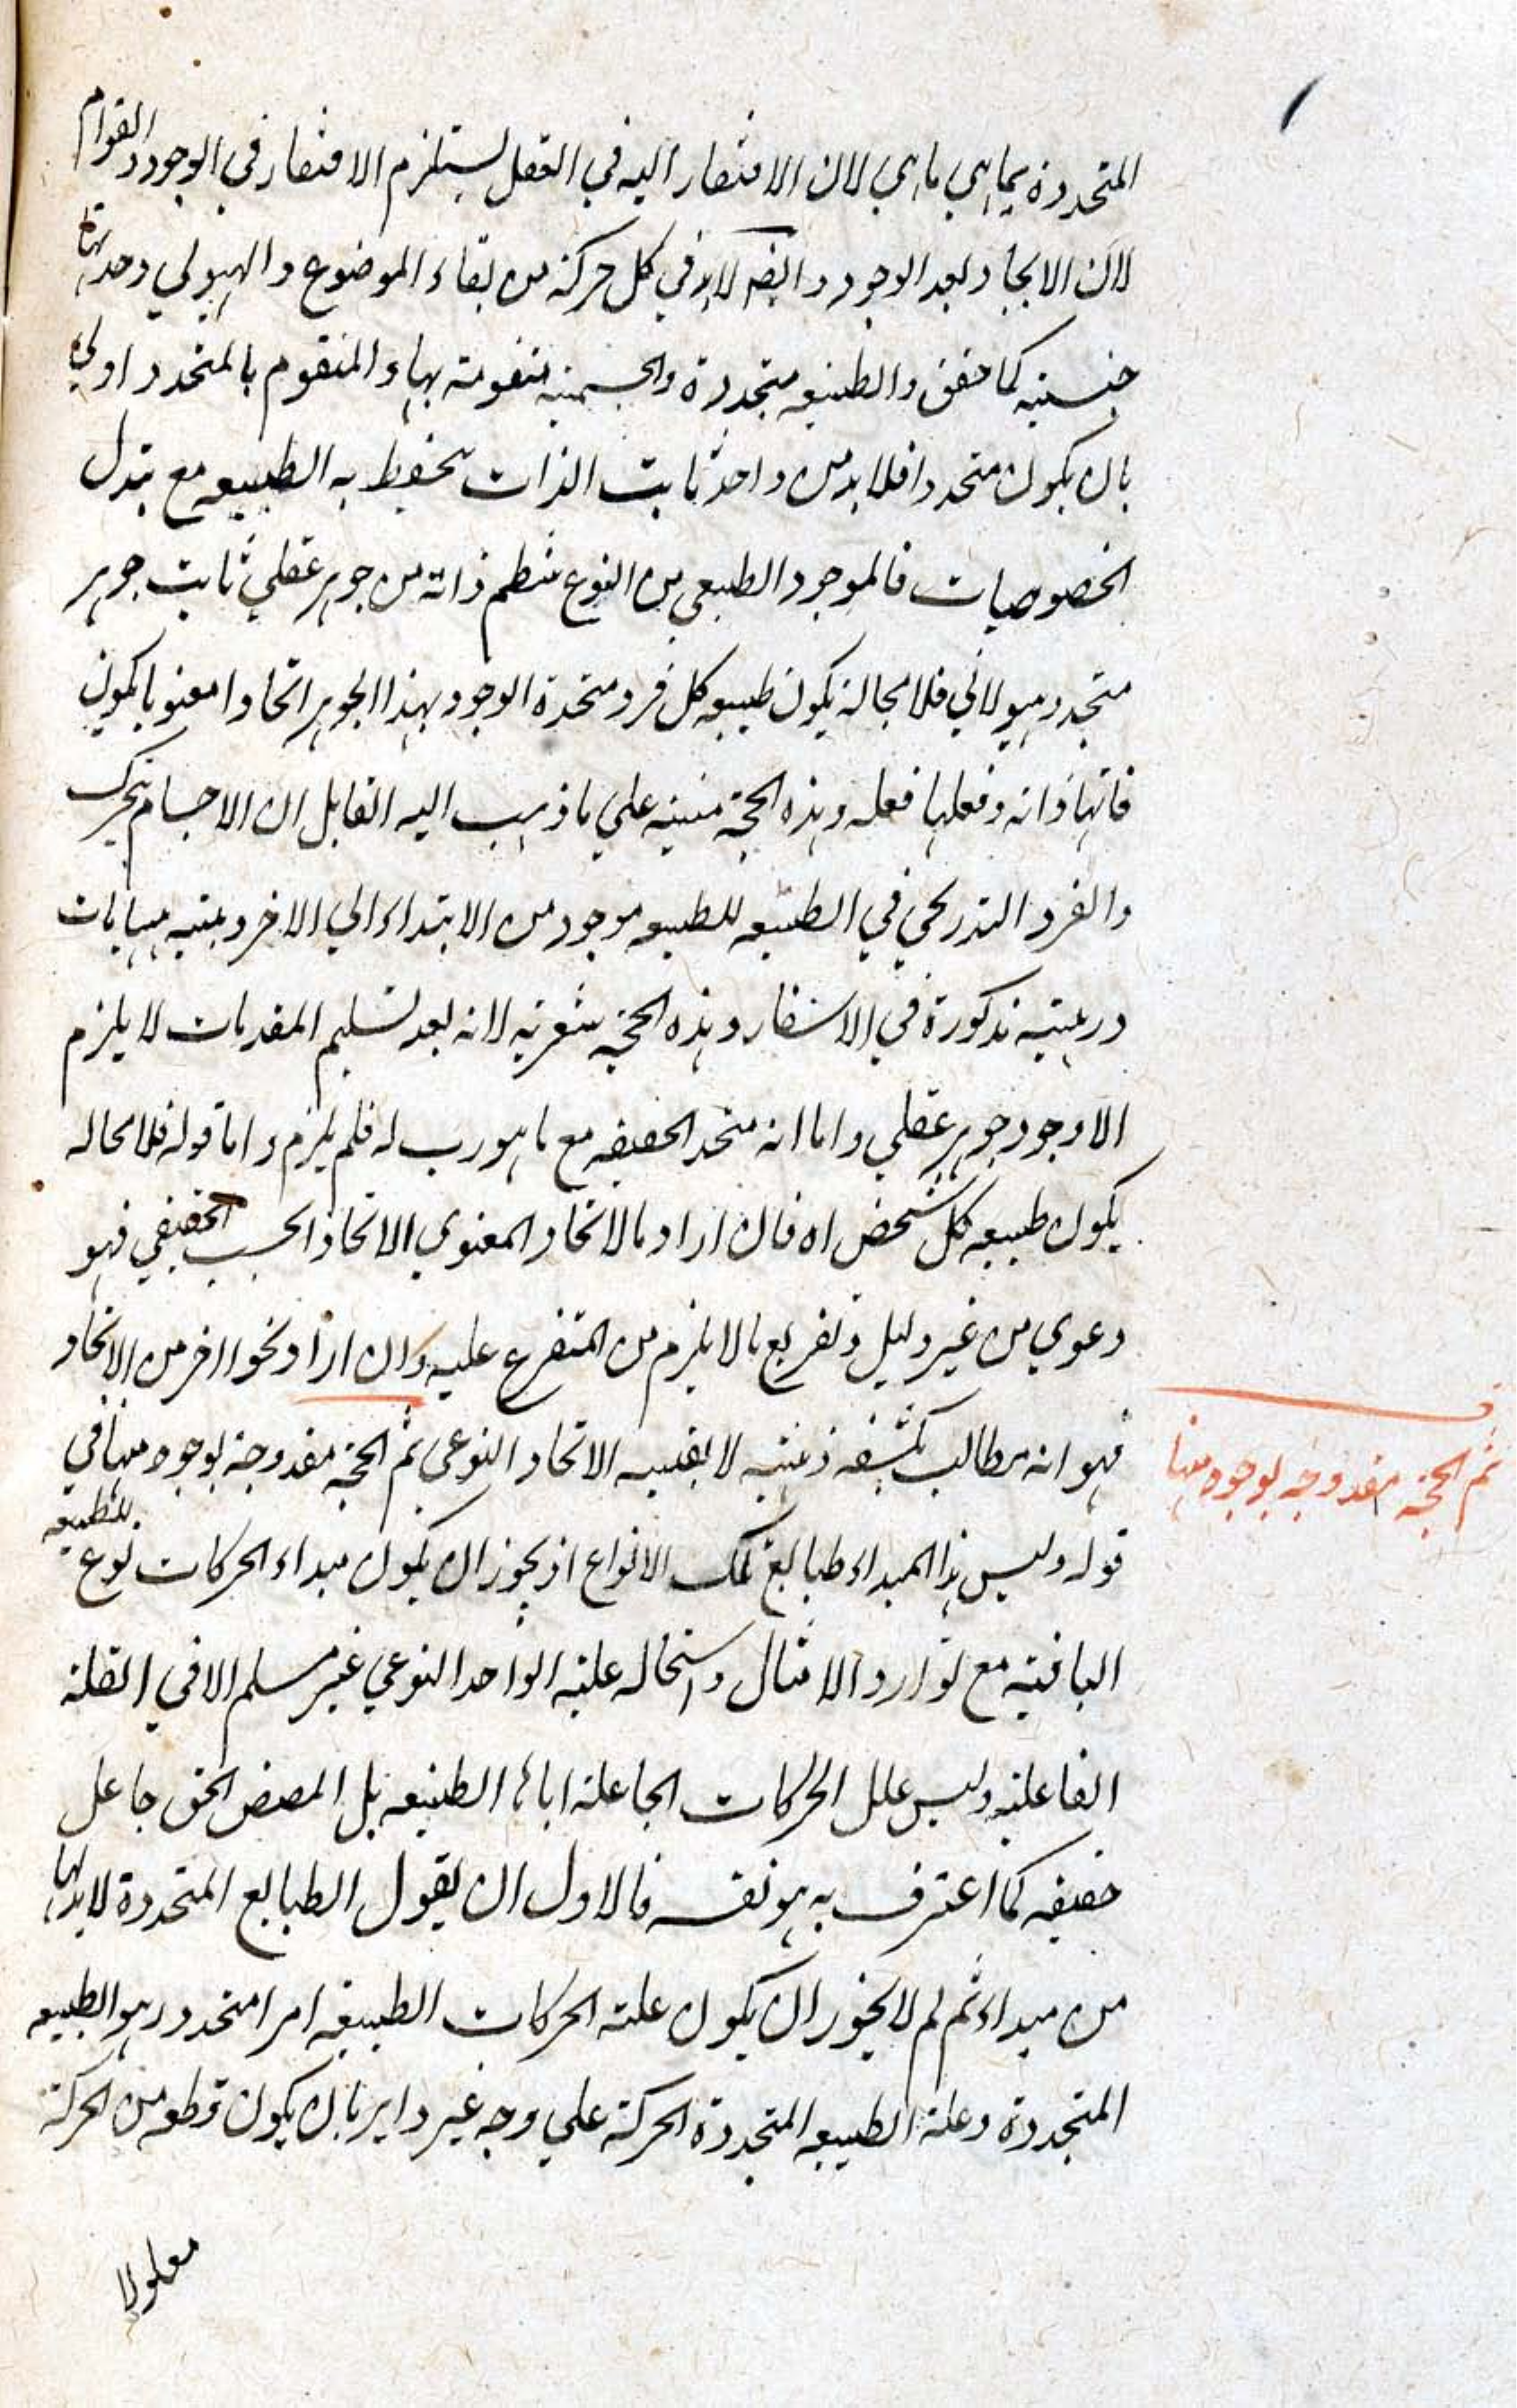 المتجددة بما هي ما هي لان الافتقار اليه في الفعل يستلزم الافتقار في الوجود والقوام
لان الايجاد بعد الوجود وايضا لابد في كل حركة من بقاء الموضوع والهيولي وحدتها
جنسية كما حقق والطبيعه متجددة والجسمية متقومة بها والمتقوم بالمتجدد اولي
بان يكون متجددا فلا بد من واحد ثابت الذات تحفظ به الطبيعه مع تبدل
الخصوصيات فالموجود الطبيعي من النوع ينتظم ذاته من جوهر عقلي ثابت جوهر
متجدد هيولاني فلا محالة يكون طبيعه كل فرد متحدة الوجود بهذا الجوهر اتحادا معنويا يكون
ذاتها ذاته وفعلها فعله وهذه الحجة مبنية علي ما ذهب اليه القايل ان الاجسام تتحرك
والفرد التدريجي في الطبيعه للطبيعه موجود من الابتداء الي الاخر
مذكورة في الاسفار وهذه الحجة شعرية لانه بعد تسليم المقدمات لا يلزم
الا وجود جوهر عقلي واما انه متحد الحقيقه مع ما هو رب له فلم يلزم واما قوله فلا محاله
يكون طبيعه كل شخص اه فان اراد بالاتحاد المعنوي الاتحاد الحقيقي فهو
دعوي من غير دليل وتفريع ما لا يلزم من المتفرع عليه وان اراد نحوا اخر من الاتحاد
فهو انه مطالب بكشفه لا الاتحاد النوعي ثم الحجة مقدوحة بوجوه منها في
ثم الحجة مقدوحه بوجوه منها
قوله وليس هذا المبداء طبايع تلك الانواع اذ يجوز ان يكون مبداء الحركات نوع للطبيعه
الباقية مع توارد الامثال واستحاله علية الواحد النوعي غير مسلم الا في العلة
الفاعلية وليس علل الحركات الجاعلة اياها الطبيعه بل المفيض الحق جاعل
حقيقه كما اعترف به هو نفسه فالاول ان يقول الطبايع المتجددة لابد لها
من مبداء ثم لم لا يجوز ان يكون علته الحركات الطبيعه امرا متجددا وهو الطبيعه
المتجددة وعلة الطبيعه المتجددة الحركة علي وجه غير داير بان يكون قطعه من الحركة
معلولا